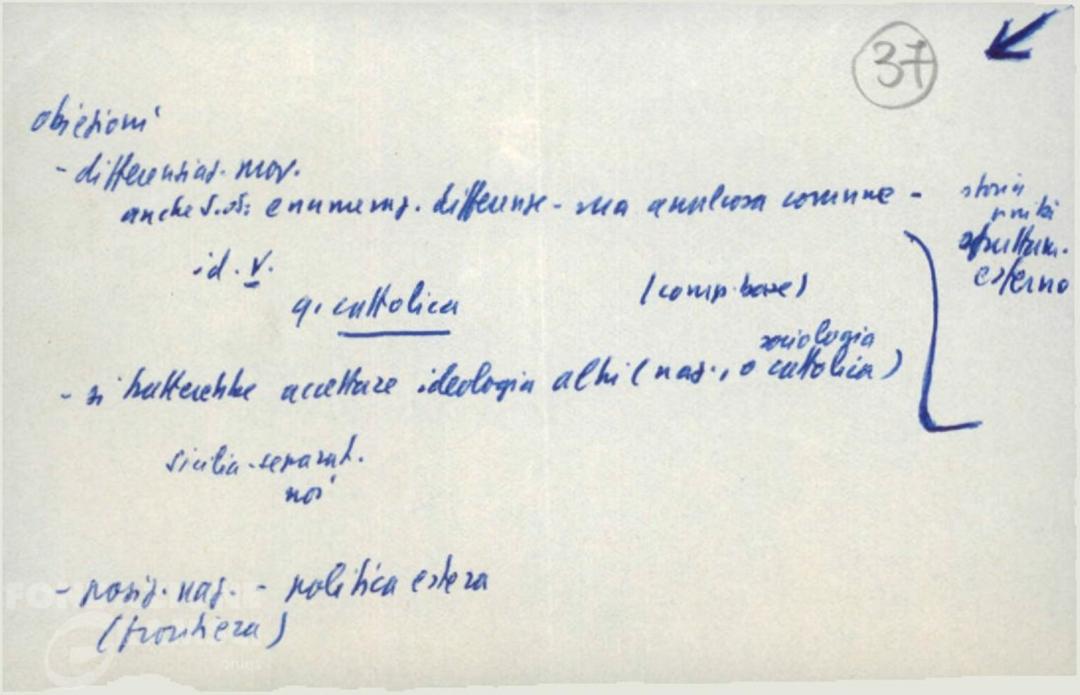 37
obiezioni
- differenziaz. mov.
anche enumeraz. differenze - ma qualcosa comune -
storia
unità
struttura.
esterno
id. V.
q. cattolica
(comp. base)
sociologia
- si tratterebbe accettare ideologia altri (naz., o cattolica)
Sicilia - separat.
noi
- posiz. naz. - politica estera
(frontiera)